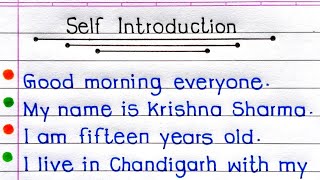 Self Introduction
Good morning everyone.
My name is Krishna Sharma.
I am fifteen years old.
I live in Chandigarh with my